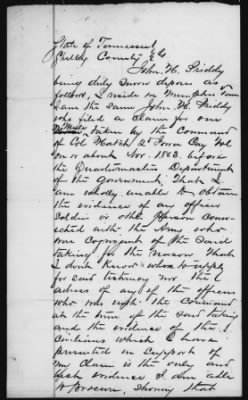 State of Tennessee
Shelby County SS
John. H. Priddy
being duly Sworn deposes as
follows, I reside in Memphis Tenn
I am the same John. H. Priddy
who filed a claim for one
Mule taken by the Command
of Col Hatch 2d Iowa Cav Vol
on or about Nov. 1863. before
the Quartermaster Department
of the Government, That I
am wholly unable to obtain
the evidence of any officer
Soldier or other Person conn-
ected with the Army who
was cognizant of the Said
taking for the reason that
I dont Know where to apply
for said testimony nor the
adress of any of the officers
who was with the Command
at the time of the said taking
and the evidence of the
which I have
presented in Support of
my claim is the only and
best evidence I am able
to Procure, Showing that